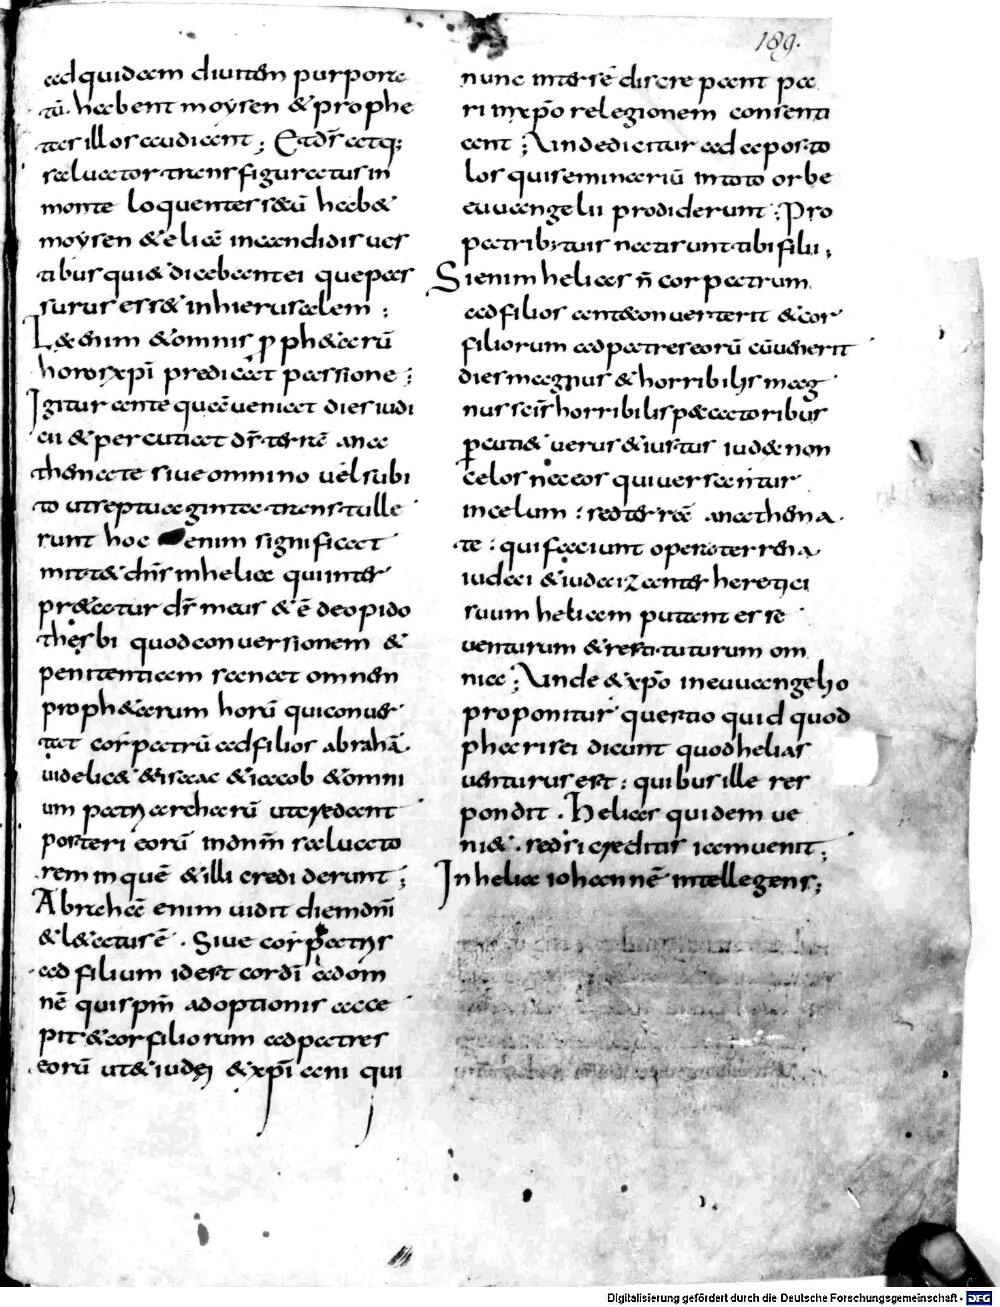 189.
ad quidam diuitem purpora
tū. habent moysen & prophe
tas illos audiant ; Et dn̄s atq;
saluator transfiguratus in
monte loquentes secū hab&
moysen & eliā in candidis ues
tibus qui & dicebant ei que pas
surus ess& in hierusalem ;
Lex enim & omnis prophetarū
horos xp̄i predicat passione ;
Igitur ante quā veniat dies iudi
cii & percutiat dn̄s terrē ana
themate sive omnino vel subi
to ut septuaginta transtulle
runt hoc enim significat
mitt& dn̄s in helia qui inter
pr&atur ds̄ meus & ē de opido
thesbi quod conversionem &
penitentiam sonat omnen
proph&arum horū qui conver
tat cor patrū ad filios abrahā
videlic& & isaac & iacob & omni
um patriarcharū ut credant
posteri eorū in dnm̄ saluato
rem in quē & illi crediderunt ;
Abrahā enim vidit diem dn̄i
& l&atus ē . Sive cor patris
ad filium id est cor dī ad om
nē qui spm̄ adoptionis acce
pit & cor filiorum ad patres
eorū ut & iudęi & xp̄iani qui
nunc inter sē discrepant pa
ri in xp̄o relegionem consenti
ant ; Unde dicitur ad aposto
los qui seminariū in toto orbe
euuangelii prodiderunt ; Pro
patrib; tuis nati sunt tibi filii ;
Si enim helias n̄ cor patrum
ad filios ante converterit & cor
filiorum ad patres eorū cū venerit
dies magnus & horribilis mag
nus scīs horribilis peccatoribus
percuti& verus & iustus iudex non
celos nec eos qui versantur
in celum : sed terrā anathema
te : qui faciunt opera terrena
iudei & iudaizantes heretici
suum heliam putant esse
venturum & restituturum om
nia ; Unde & xp̄o in euuangelio
proponitur questio quid quod
pharisei dicunt quod helias
venturus est : quibus ille res
pondit . Helias quidem ve
ni& . sed si creditis iam uenit ;
In helia iohannē intellegens ;
Digitalisierung gefördert durch die Deutsche Forschungsgemeinschaft - DFG